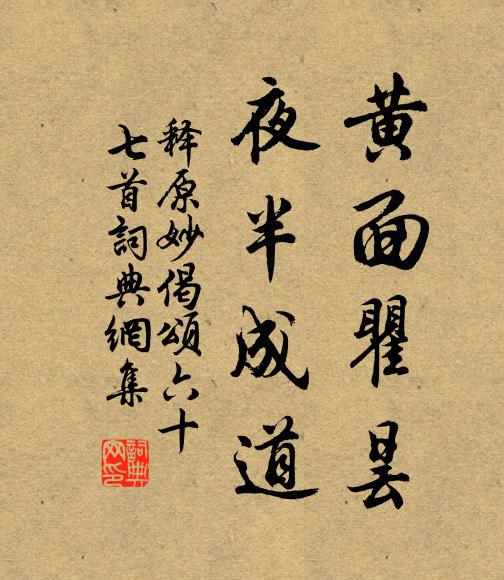 黄面瞿昙
夜半成道
释原妙偈頌六十
七首詞典網集
詞典
网印